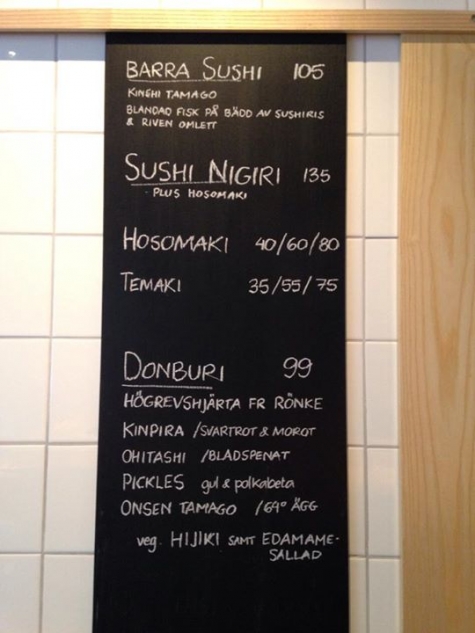 BARRA SUSHI 105
KINSHI TAMAGO
BLANDAD FISK PÅ BÄDD AV SUSHIRIS
& RIVEN OMLETT
SUSHI NIGIRI 135
PLUS HOSOMAKI
HOSOMAKI 40/60/80
TEMAKI 35/55/75
DONBURI 99
HÖGREVSHJÄRTA FR RÖNKE
KINPIRA /SVARTROT & MOROT
OHITASHI /BLADSPENAT
PICKLES gul & polkabeta
ONSEN TAMAGO /64° ÄGG
veg. HIJIKI SAMT EDAMAME-
SALLAD